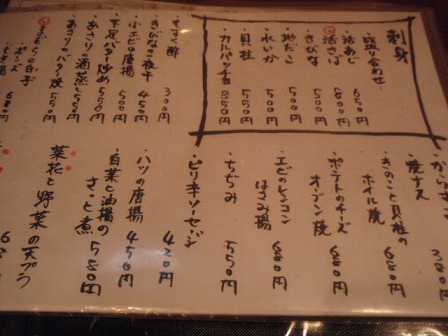 刺身
・盛り合わせ
・活あじ 650円
・活さば 800円
・さかな 500円
・地だこ 500円
・水いか 500円
・貝柱 550円
・カルパッチョ 850円
もずく酢 300円
・小エビの唐揚 500円
・下足バター炒め 500円
・あさりの酒蒸し 550円
・あさりのバター焼 550円
たらの白子
ポン酢
・焼ナス 380円
・きのこと貝柱の
ホイル焼 680円
・ポテトのチーズ
オーブン焼 680円
・エビのレンコン
はさみ揚 680円
・ちぢみ 550円
・ピリ辛ソーセージ 420円
・ハツの唐揚 450円
・白菜と油揚の
さっと煮 580円
菜花と野菜の天プラ